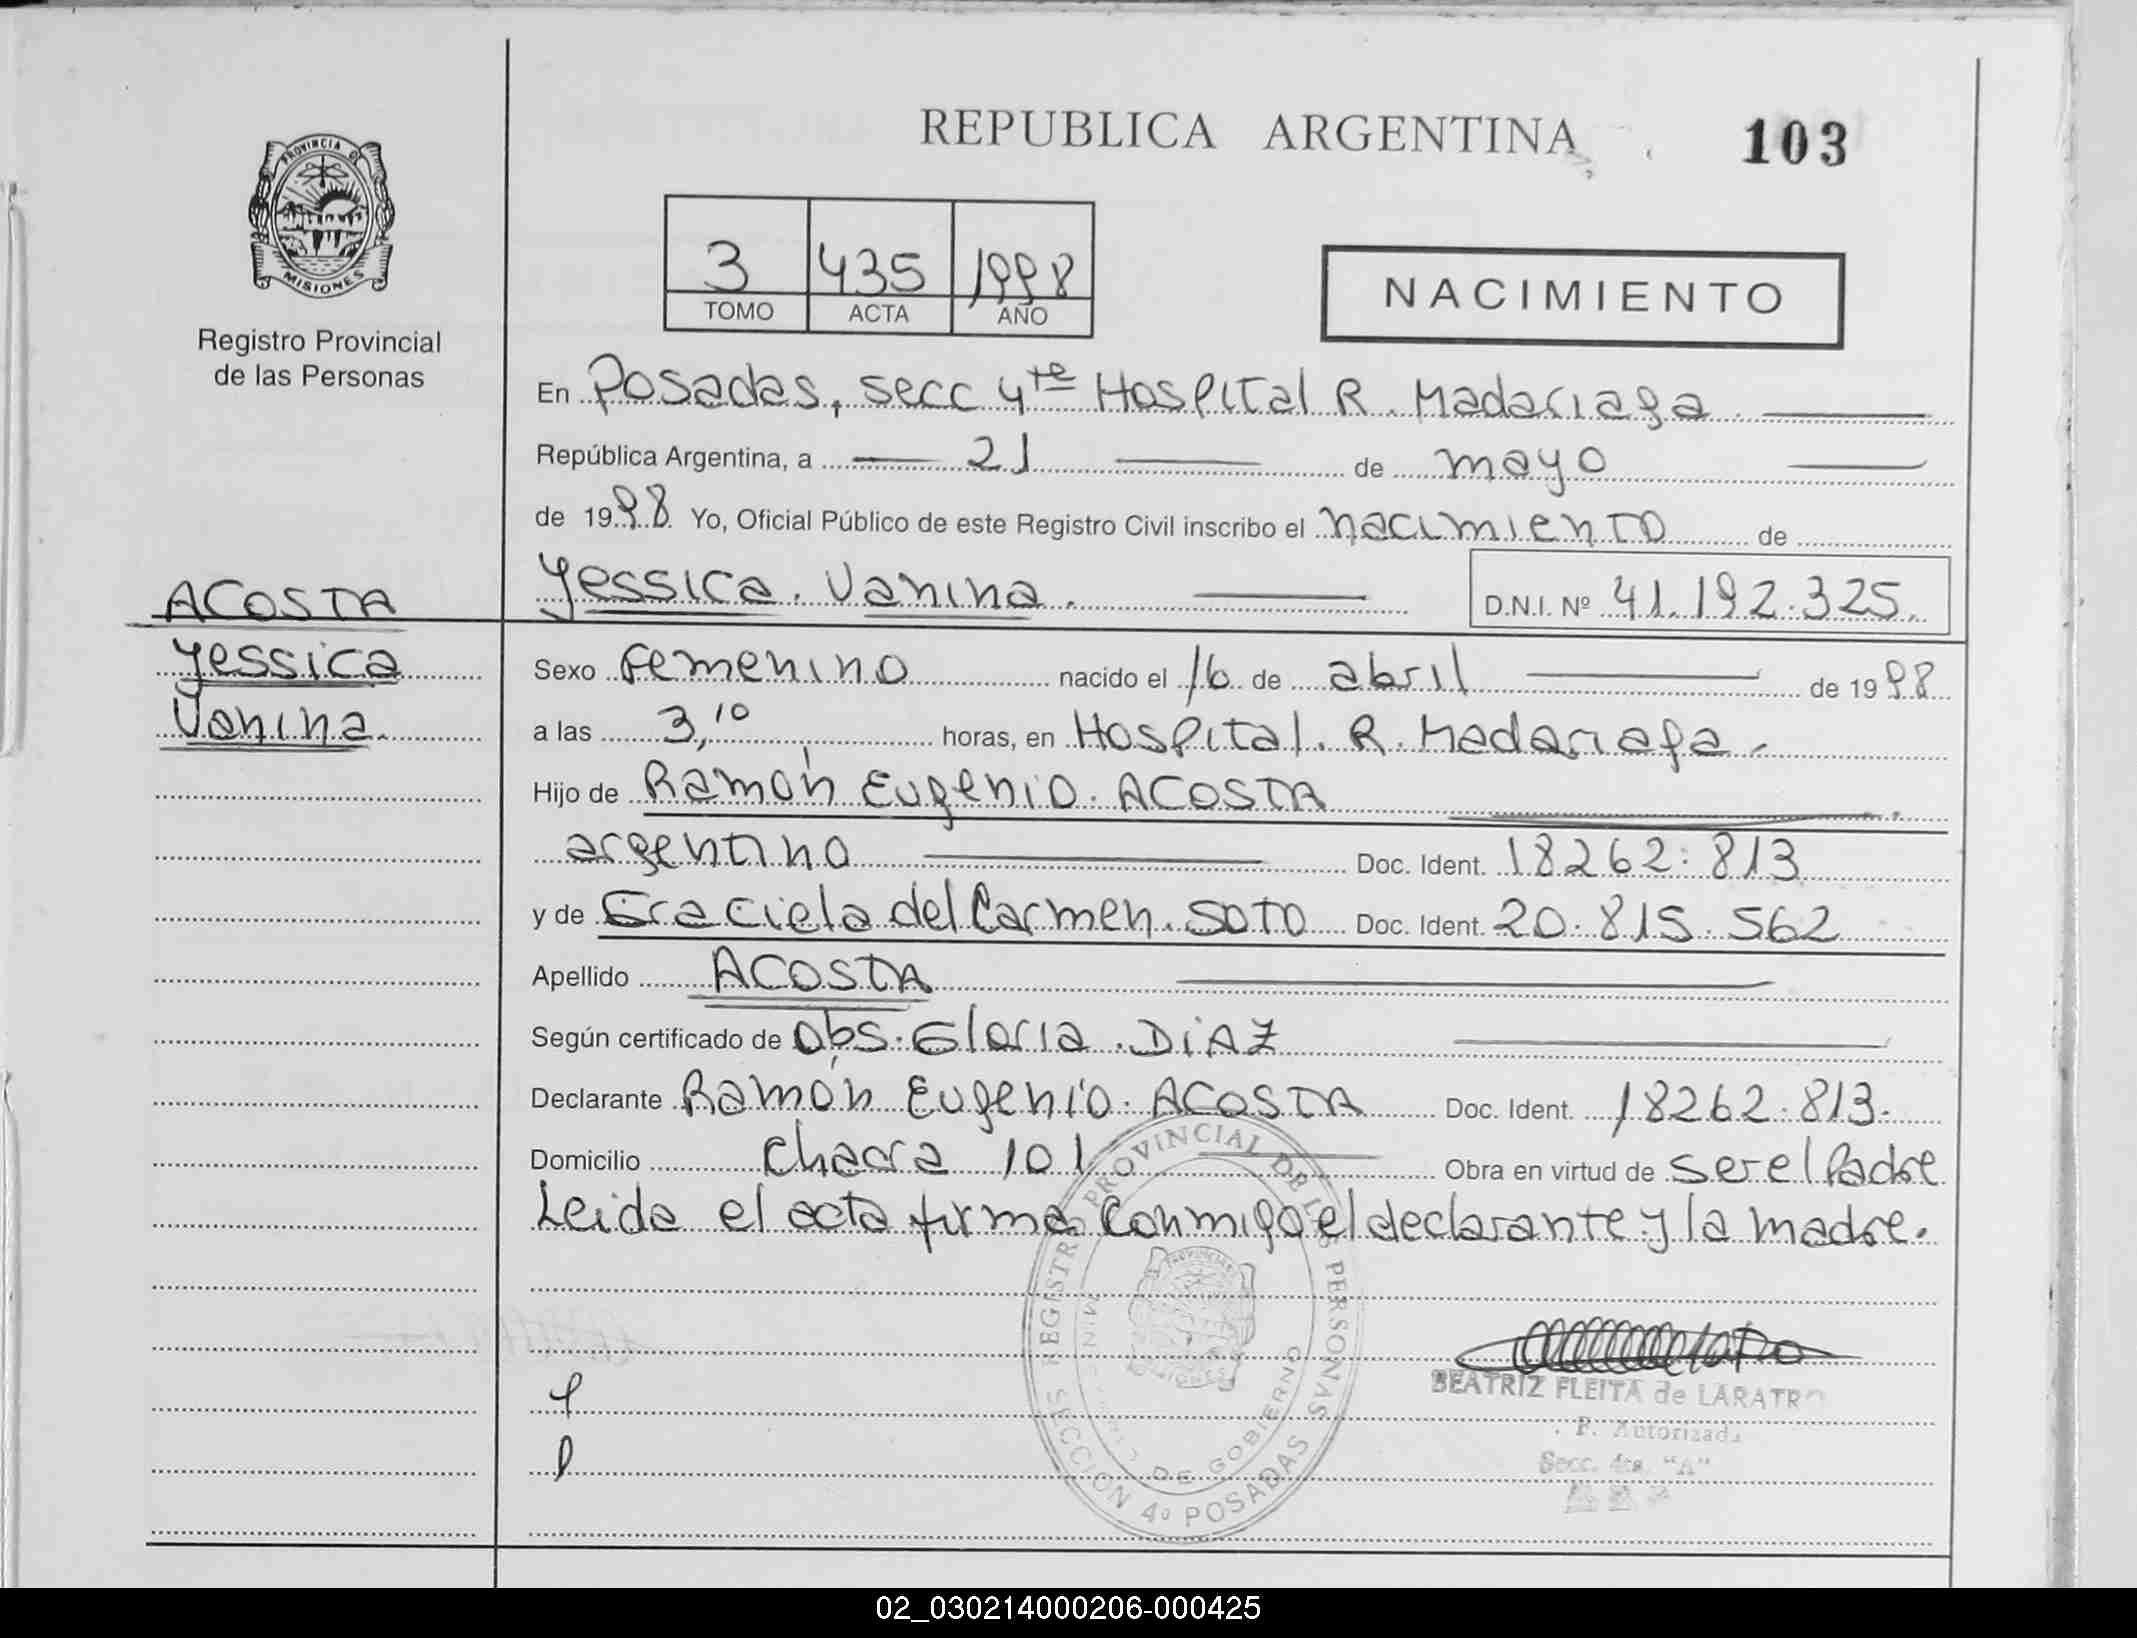 REPUBLICA ARGENTINA
103
PROVINCIA DE
MISIONES
Registro Provincial
de las Personas
3 435 1998
TOMO ACTA AÑO
NACIMIENTO
En Posadas, secc 4te Hospital R. Madariaga.
República Argentina, a 21 de mayo
de 1998 Yo, Oficial Público de este Registro Civil inscribo el nacimiento de
Yessica. Vanina. D.N.I. Nº 41.192.325.
ACOSTA
Yessica
Vanina.
Sexo Femenino nacido el 16 de abril de 1998
a las 3,10 horas, en Hospital. R. Madariaga.
Hijo de Ramón Eugenio. ACOSTA
argentino Doc. Ident. 18262.813
y de Graciela del Carmen. SOTO Doc. Ident. 20.815.562
Apellido ACOSTA
Según certificado de Obs. Gloria. DIAZ
Declarante Ramón Eugenio. ACOSTA Doc. Ident. 18262.813.
Domicilio chacra 101 Obra en virtud de ser el Padre
Leida el acta firma conmigo el declarante y la madre.
REGISTRO PROVINCIAL DE LAS PERSONAS
DE GOBIERNO
SECCION 4º POSADAS
BEATRIZ FLEITA de LARATRO
P. Autorizada
Secc. 4ta. "A"
02_030214000206-000425